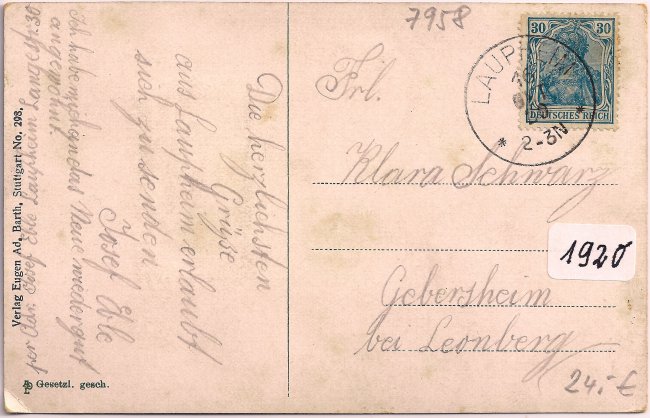 7958
30 30
DEUTSCHES REICH
LAUPHEIM
2-3N
Frl.
Klara Schwarz
Gebersheim
bei Leonberg
1920
24.- €
Die herzlichsten
Grüße
aus Laupheim erlaubt
sich zu senden
Josef Eble
Ich habe mich an das Neue wieder gut
angewöhnt.
per Adr. Josef Eble Laupheim Langestr. 30
Verlag Eugen Ad. Barth, Stuttgart No. 298.
Gesetzl. gesch.